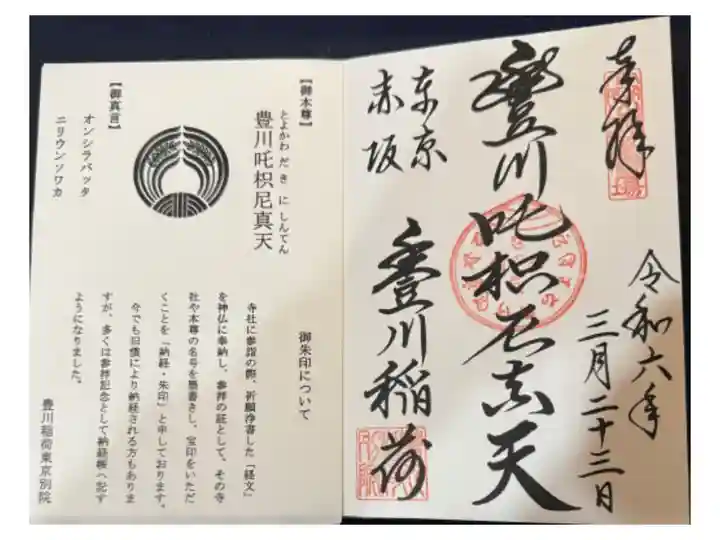 奉拝
令和六年
三月二十三日
豐川吒枳尼真天
東京
赤坂
豐川稲荷
【御本尊】
とよかわ だ き に しんてん
豊川吒枳尼真天
【御真言】
オンシラバッタ
ニリウンソワカ
御朱印について
寺社に参詣の際、祈願浄書した「経文」
を神仏に奉納し、参拝の証として、その寺
社や本尊の名号を墨書きし、宝印をいただ
くことを「納経・朱印」と申しております。
今でも旧儀により納経される方もありま
すが、多くは参拝記念として納経帳へ記す
ようになりました。
豊川稲荷東京別院